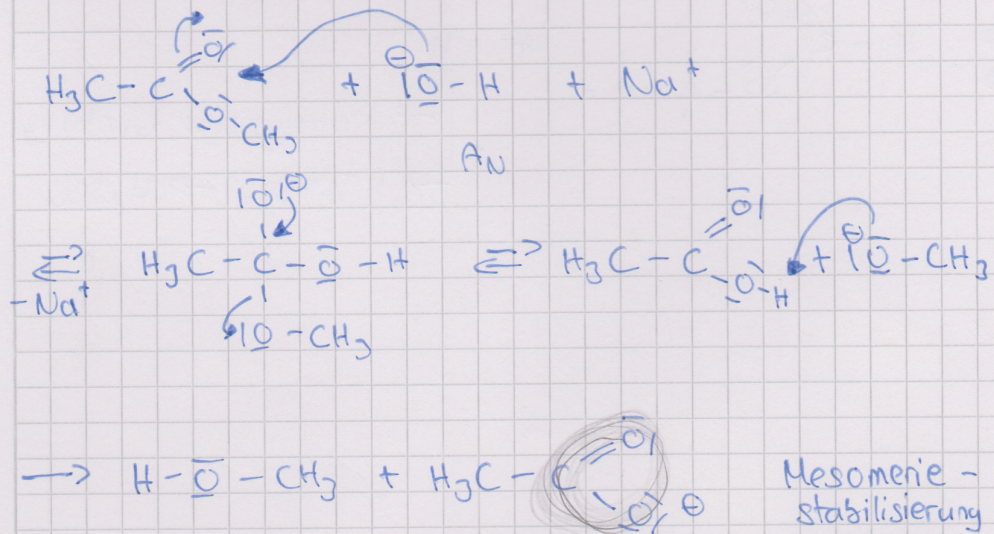 H₃C – C = O – O – CH₃ + ⊖ |O – H + Na⁺
A_N
⇌ -Na⁺ H₃C – C(|O|⊖)(|O – CH₃) – O – H ⇌ H₃C – C = O| – O – H + ⊖ |O – CH₃
→ H – O – CH₃ + H₃C – C = O| – O| ⊖ Mesomerie-
stabilisierung